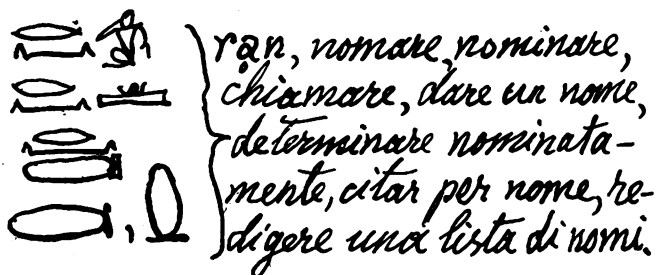 ran, nomare, nominare,
chiamare, dare un nome,
determinare nominata-
mente, citar per nome, re-
digere una lista di nomi.